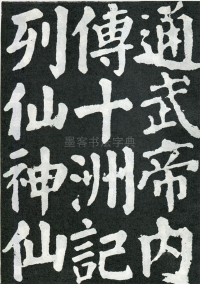 通武帝内
傳十洲記
列仙神仙
墨客书法字典